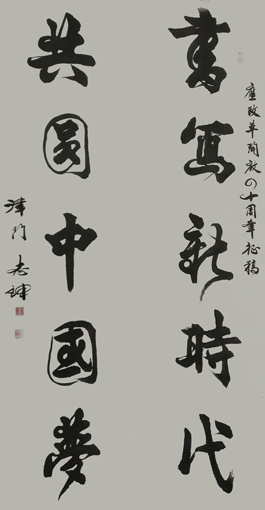 應改革開放四十周年征稿
書寫新時代
共圓中國夢
津门 志坤